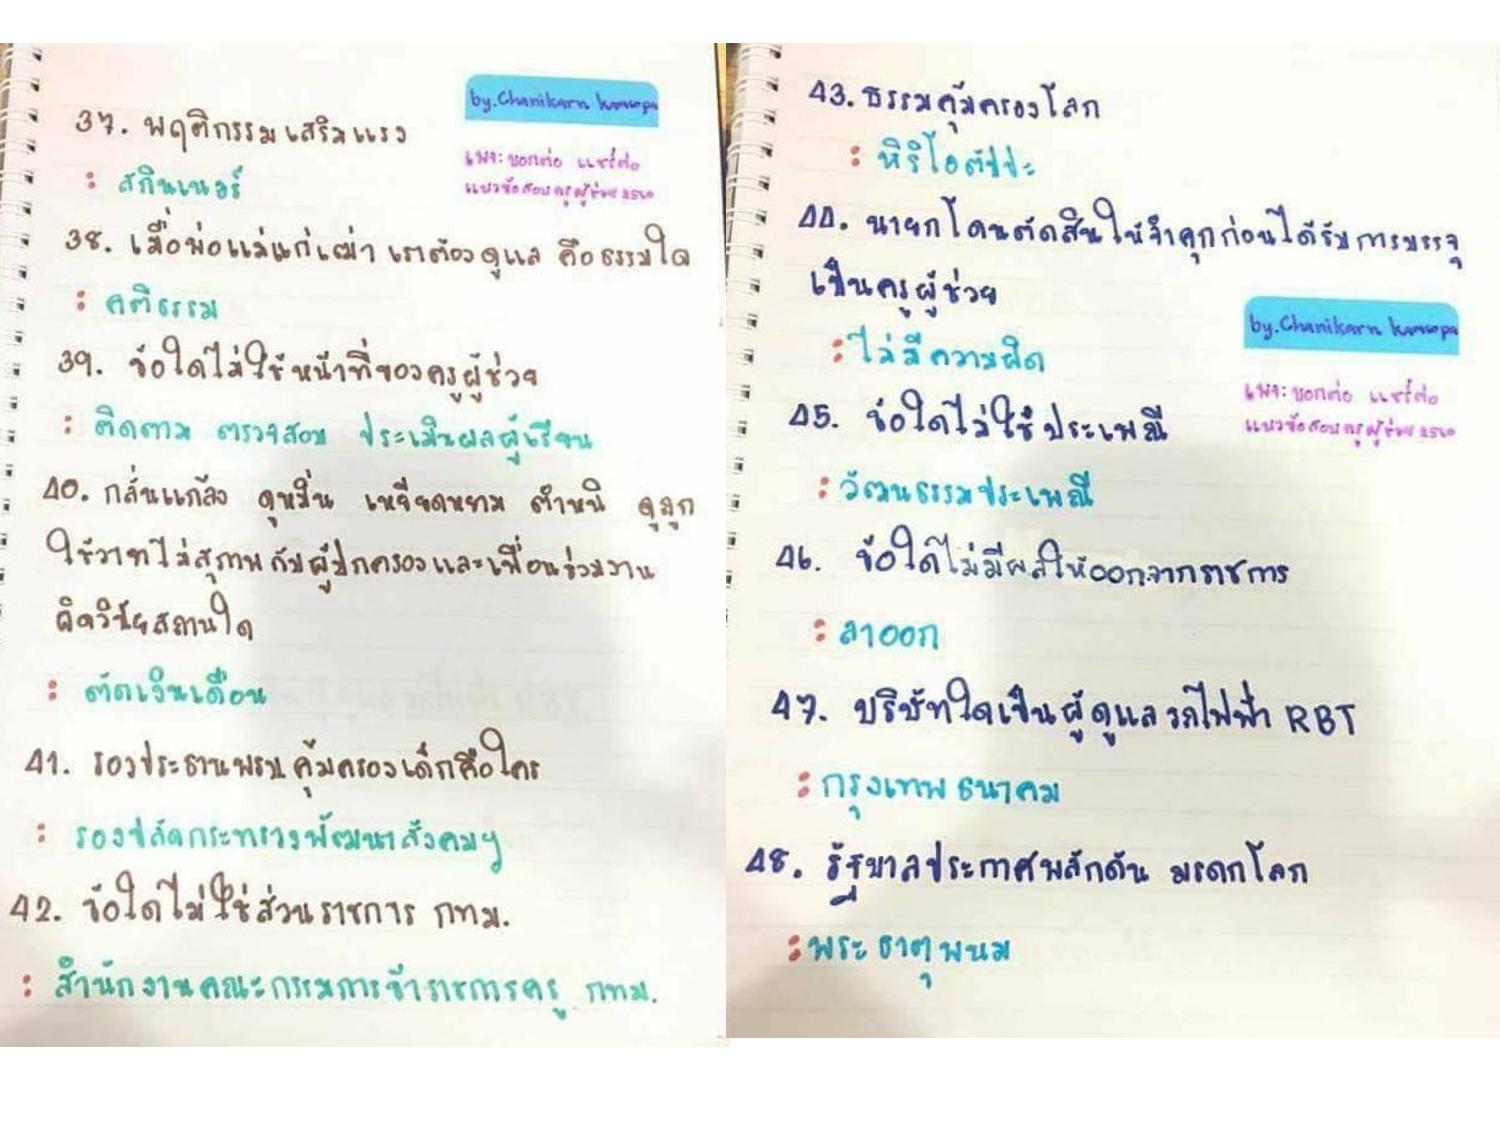 by.Chanikarn
เพจ: บอกต่อ แชร์ต่อ
แนวข้อสอบครูผู้ช่วย 2560
37. พฤติกรรมเสริมแรง
: สกินเนอร์
38. เมื่อพ่อแม่แก่เฒ่า เราต้องดูแล คือธรรมใด
: คติธรรม
39. ข้อใดไม่ใช้หน้าที่ของครูผู้ช่วย
: ติดตาม ตรวจสอบ ประเมินผลผู้เรียน
40. กลั่นแกล้ง ดูหมิ่น เหยียดหยาม ตำหนิ ดูถูก
ใช้วาทไม่สุภาพกับผู้ปกครองและเพื่อนร่วมงาน
ผิดวินัยสถานใด
: ตัดเงินเดือน
41. รองประธานพรบ คุ้มครองเด็กคือใคร
: รองปลัดกระทรวงพัฒนาสังคมฯ
42. ข้อใดไม่ใช่ส่วนราชการ กทม.
: สำนักงานคณะกรรมการข้าราชการครู กทม.
43. ธรรมคุ้มครองโลก
: หิริโอตัปปะ
44. นายกโดนตัดสินให้จำคุกก่อนได้รับการบรรจุ
เป็นครูผู้ช่วย
: ไม่มีความผิด
by.Chanikarn
เพจ: บอกต่อ แชร์ต่อ
แนวข้อสอบครูผู้ช่วย 2560
45. ข้อใดไม่ใช้ประเพณี
: วัฒนธรรมประเพณี
46. ข้อใดไม่มีผลให้ออกจากราชการ
: ลาออก
47. บริษัทใดเป็นผู้ดูแลรถไฟฟ้า RBT
: กรุงเทพธนาคม
48. รัฐบาลประกาศผลักดัน มรดกโลก
: พระธาตุพนม